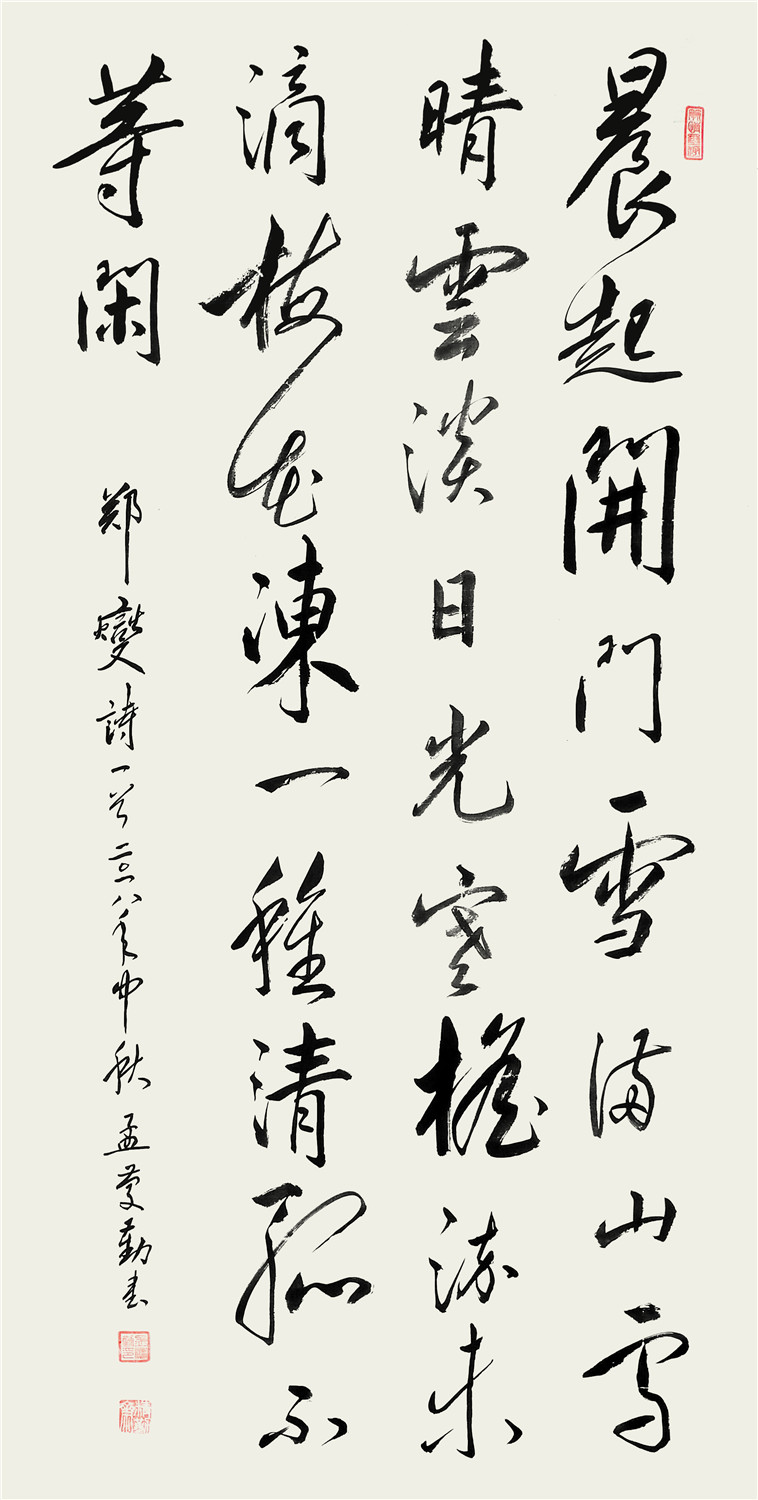 晨起開門雪滿山雪
晴雲淡日光寒檐流未
滴梅花凍一種清孤不
等閑
郑燮詩一首二〇一八年中秋孟勤书